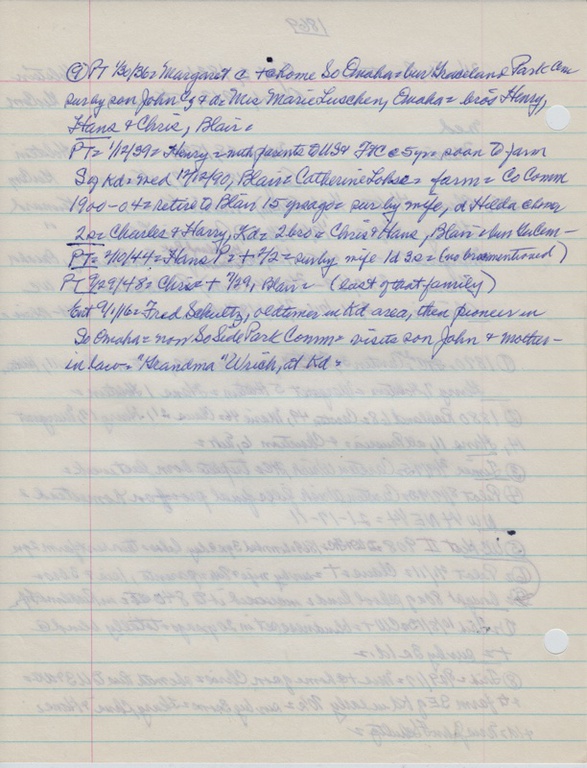 1869
⑨ PT 1/30/36 = Margaret C + @ home So Omaha = bur Graceland Park Cem
surby son John Y & d = Mrs Marie Luschen, Omaha = bros Henry,
Hans & Chris, Blair =
PT = 1/12/39 = Henry = with parents to US & FtC @ 5 yr = soon to farm
S of Kd = wed 12/12/90, Blair = Catherine Lohse = farm = Co Comm
1900-04 = retire to Blair 15 yrs ago = sur by wife, d Hilda @ home
2 s = Charles & Harry, Kd = 2 bro = Chris & Hans, Blair = bur
PT = 2/10/44 = Hans P = + 2/2 = surby wife 1d 3s = (no bro mentioned)
PT 9/29/48 = Chris = + 7/29, Blair = (last of that family)
Ent 9/1/16 = Fred Schultz, oldtimer in Kd area, then pioneer in
So Omaha = now So Side Park Comm = visits son John & mother-
in law = "Grandma" Wrich, at Kd =